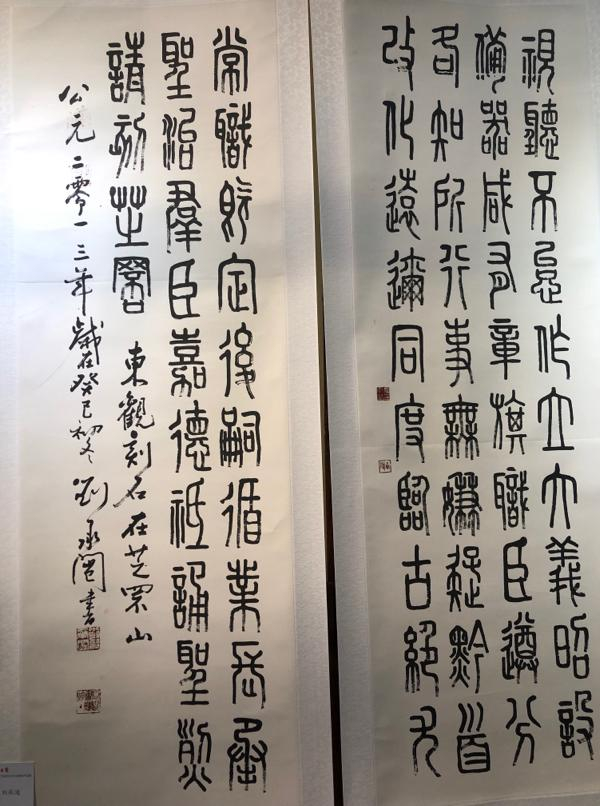 視聽不怠作立大義昭設
備器咸有章旗職臣遵分
各知所行事無嫌疑黔首
改化遠邇同度臨古絕尤
常職既定後嗣循業長承
聖治羣臣嘉德祗誦聖烈
請刻芝罘 東觀刻石在芝罘山
公元二零一三年歲在癸巳初冬 劉承闓書